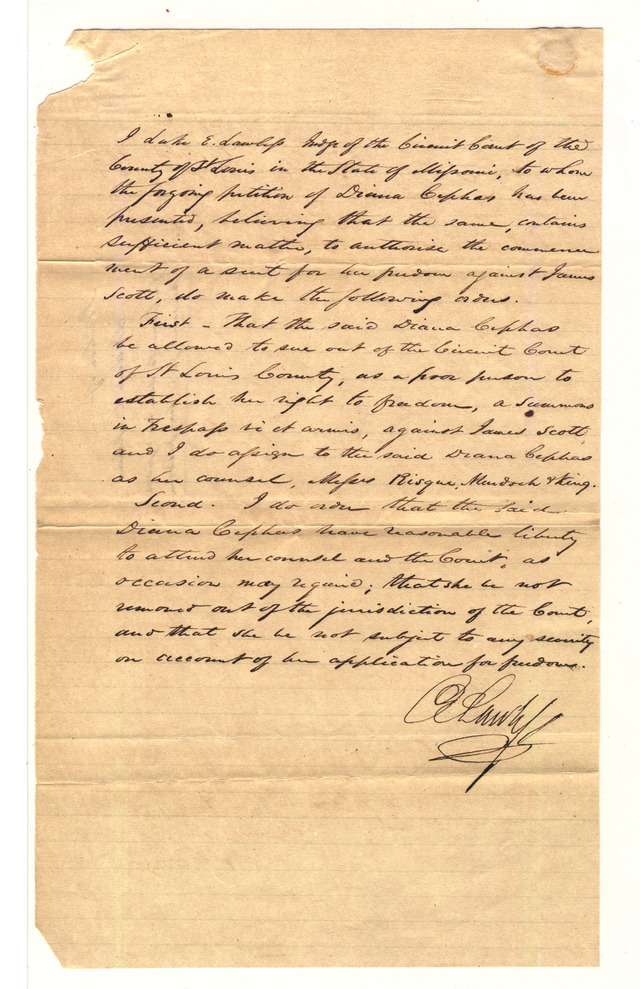 I Luke E. Lawless Judge of the Circuit Court of the
County of St Louis in the State of Missouri, to whom
the forgoing petition of Diana Cephas has been
presented, believing that the same, contains
sufficient matter, to authorise the commence
ment of a suit for her freedom against James
Scott, do make the following orders.
First - That the said Diana Cephas
be allowed to sue out of the Circuit Court
of St Louis County, as a poor person to
establish her right to freedom, a summons
in Trespass vi et armis, against James Scott,
and I do assign to the said Diana Cephas
as her counsel, Messrs Risque, Murdoch & King.
Second. I do order that the said
Diana Cephas have reasonable liberty
to attend her counsel and the Court, as
occasion may require; that she be not
removed out of the jurisdiction of the Court,
and that she be not subject to any severity
on account of her application for freedom.
L E Lawless